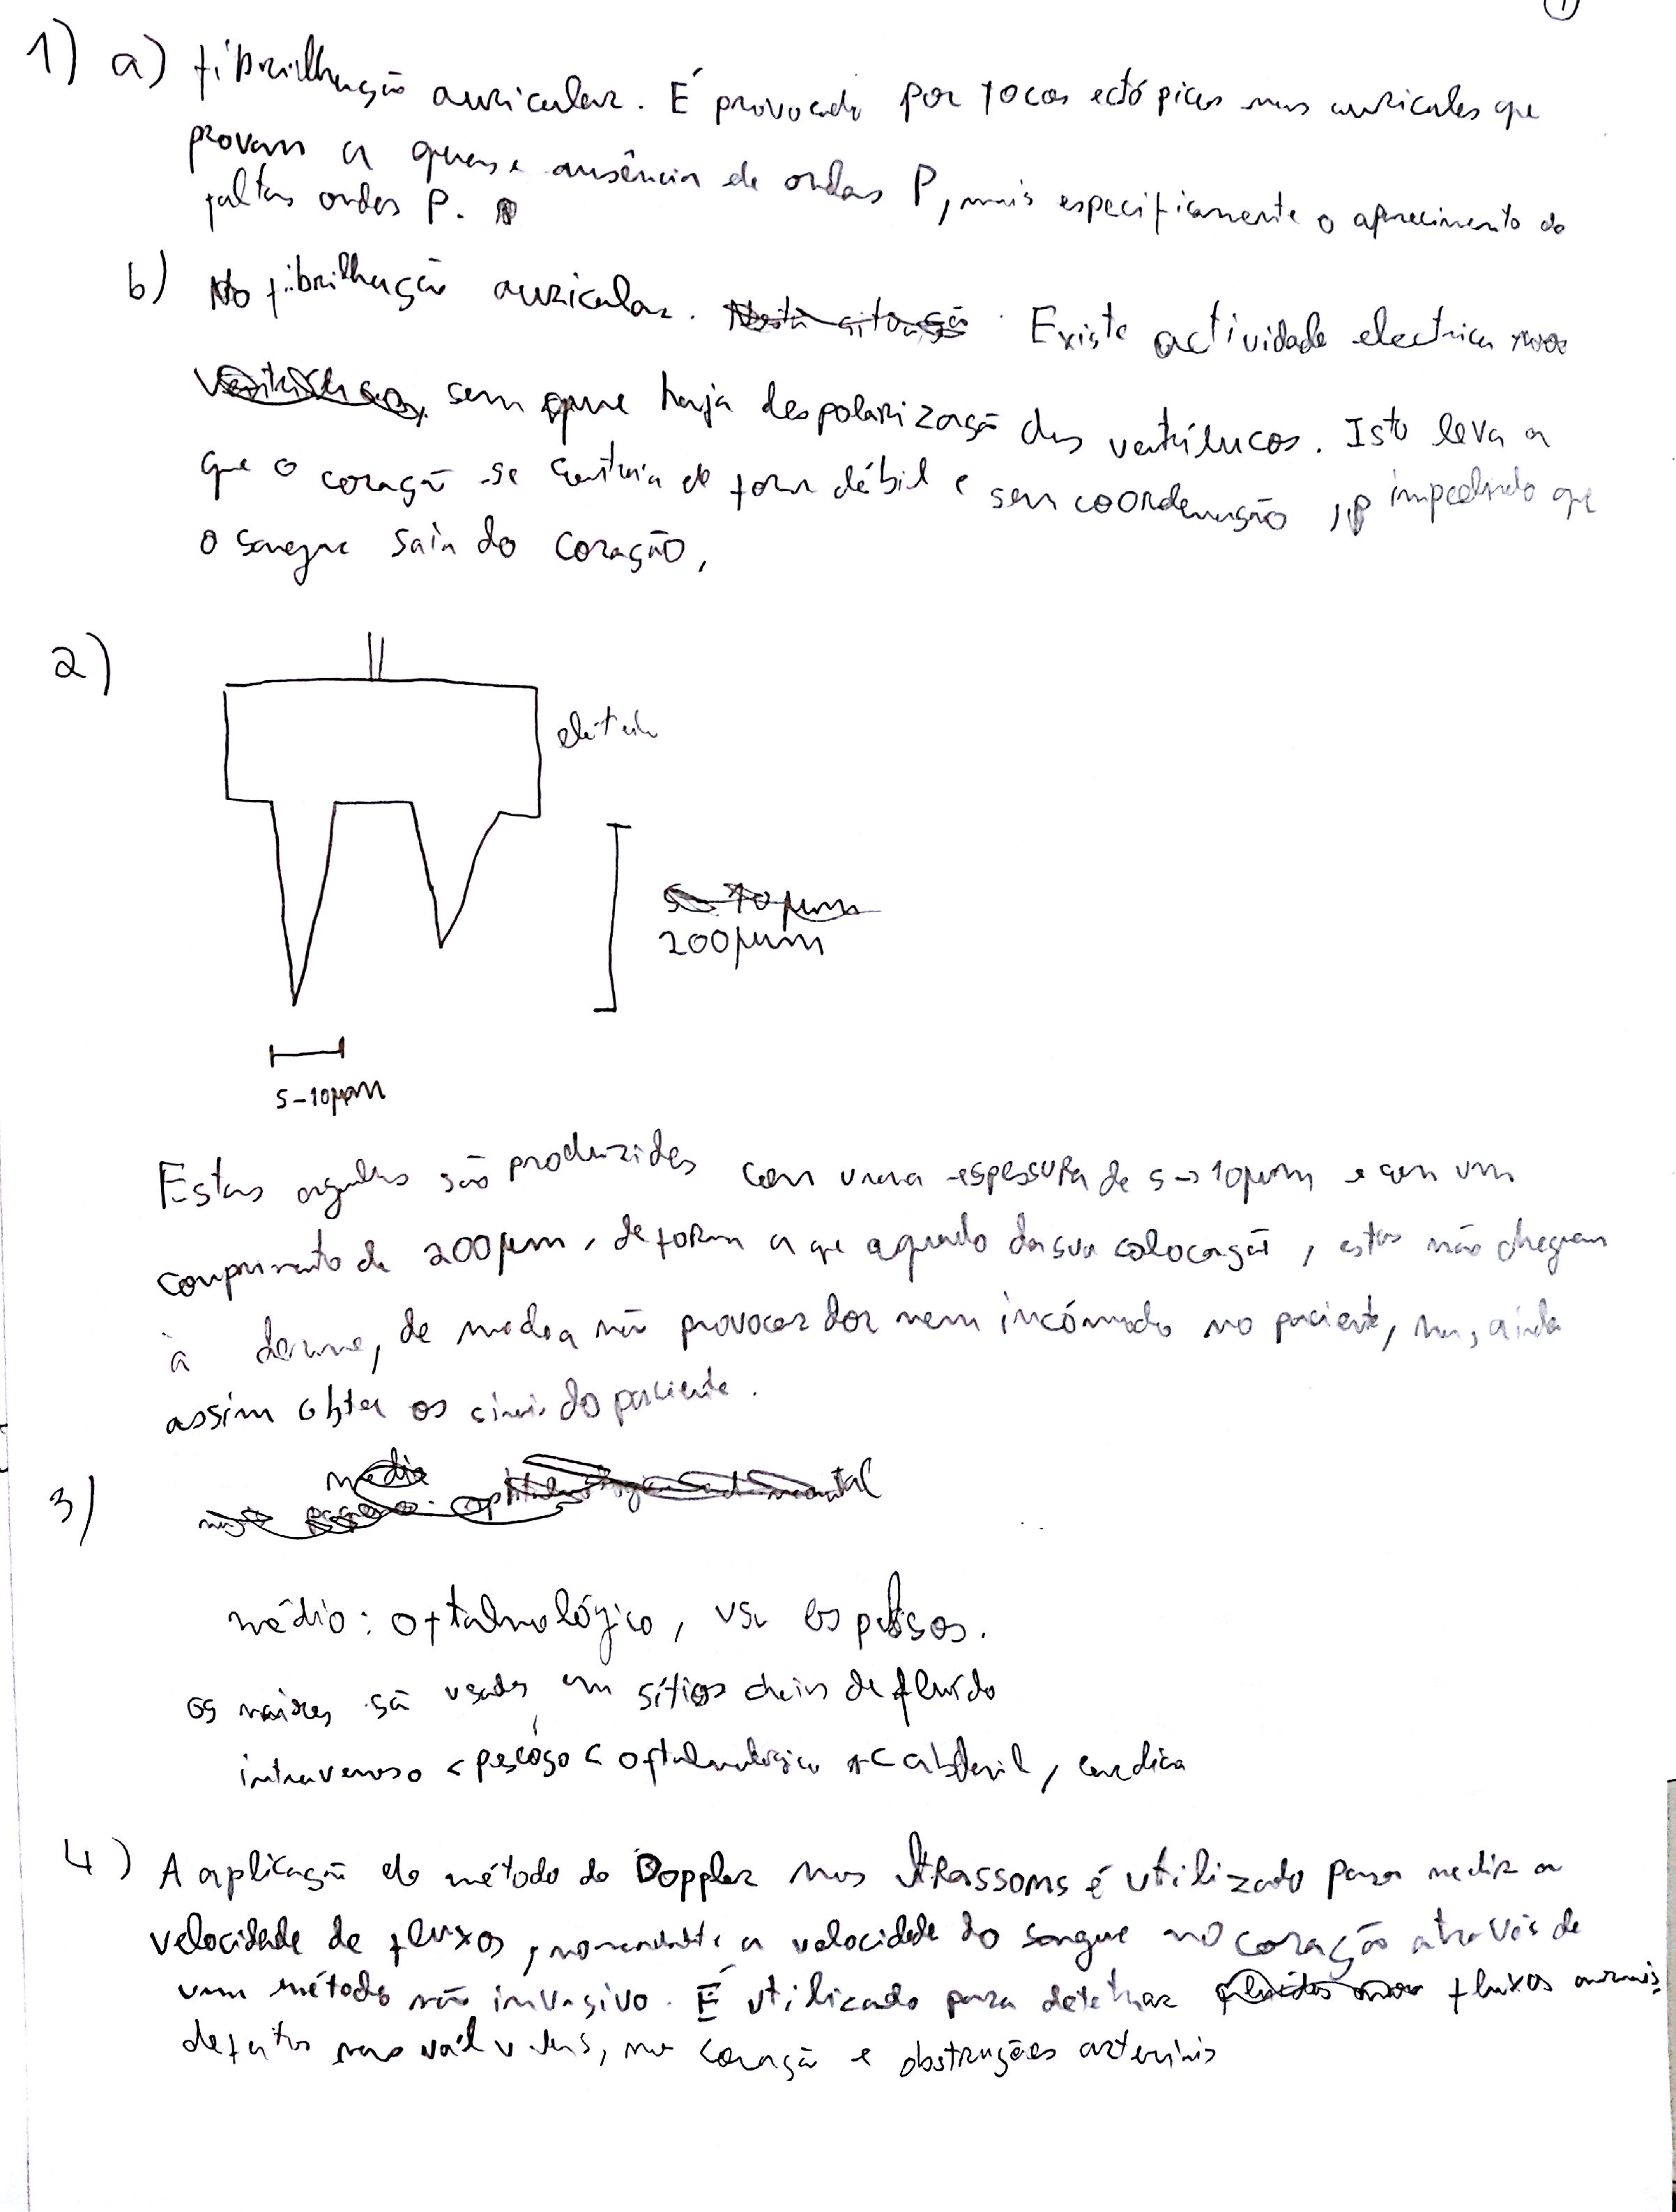 1
1) a) fibrilhação auricular. É provocado por focos ectópicos nas aurículas que
provam a quase ausência de ondas P, mais especificamente o aparecimento de
faltas ondas P.
b) Na fibrilhação auricular. Existe actividade electrica
sem que haja despolarização dos ventrílucos. Isto leva a
que o coração se contraia de forma débil e sem coordenação, impedindo que
o sangue saia do coração,
2)
200µm
5-10µm
Estas agulhas são produzidas com uma espessura de 5→10µm e com um
comprimento de 200µm, de forma a que aquando da sua colocação, estas não chegam
à derme, de modo a não provocar dor nem incómodo no paciente, mas, ainda
assim obter os sinais do paciente.
3)
médio: oftalmológico, usa os pulsos.
os maiores são usados em sítios cheios de fluído
intravenoso < pescoço < oftalmológico < abdominal, cardíaca
4) A aplicação do método do Doppler nos Ultrassons é utilizado para medir a
velocidade de fluxos, nomeadamente a velocidade do sangue no coração através de
um método não invasivo. É utilizado para detetar fluxos anormais,
defeitos nas válvulas, no coração e obstruções arteriais